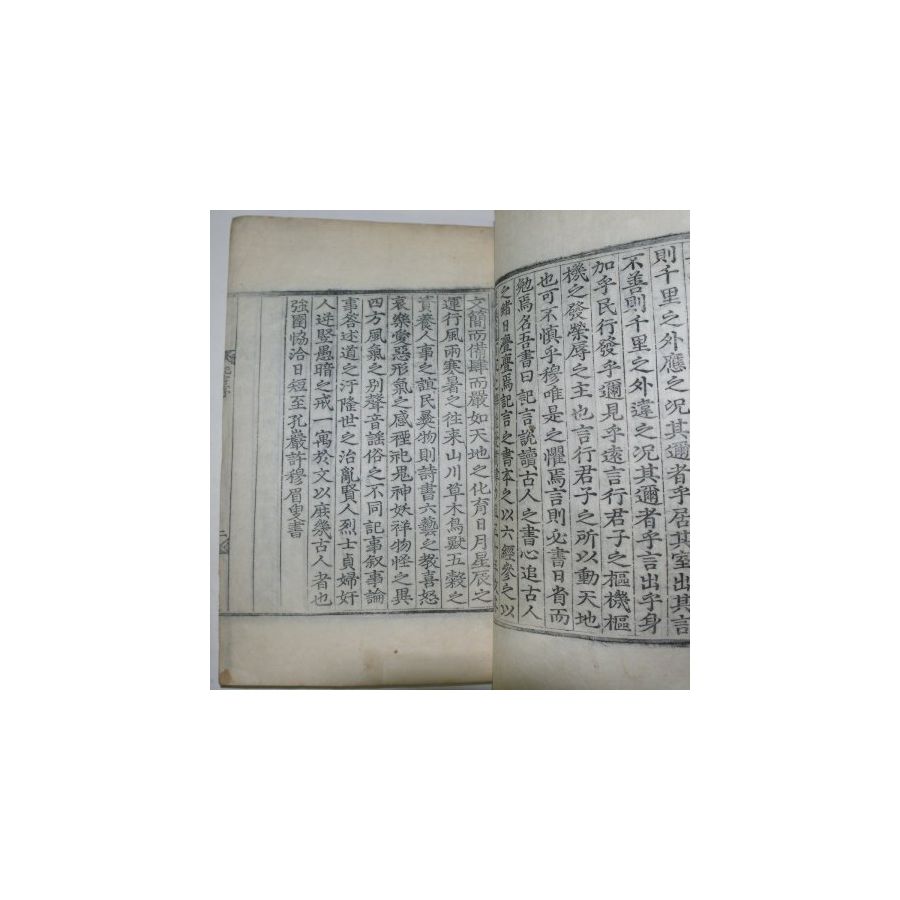 則千里之外應之况其邇者乎居其室出其言
不善則千里之外違之况其邇者乎言出乎身
加乎民行發乎邇見乎遠言行君子之樞機樞
機之發榮辱之主也言行君子之所以動天地
也可不慎乎穆唯是之懼焉言則必書日省而
勉焉名吾書曰記言說讀古人之書心追古人
之緒日亹亹焉記言之書本之以六經參之以
文簡而備肆而嚴如天地之化育日月星辰之
運行風雨寒暑之往来山川草木鳥獸五穀之
資養人事之誼民彝物則詩書六藝之教喜怒
哀樂愛惡形氣之感禋祀鬼神妖祥物怪之異
四方風氣之别聲音謡俗之不同記事叙事論
事答述道之汙隆世之治亂賢人烈士貞婦奸
人逆竪愚暗之戒一寓於文以庶幾古人者也
強圉恊洽日短至孔巖許穆眉叟書
二